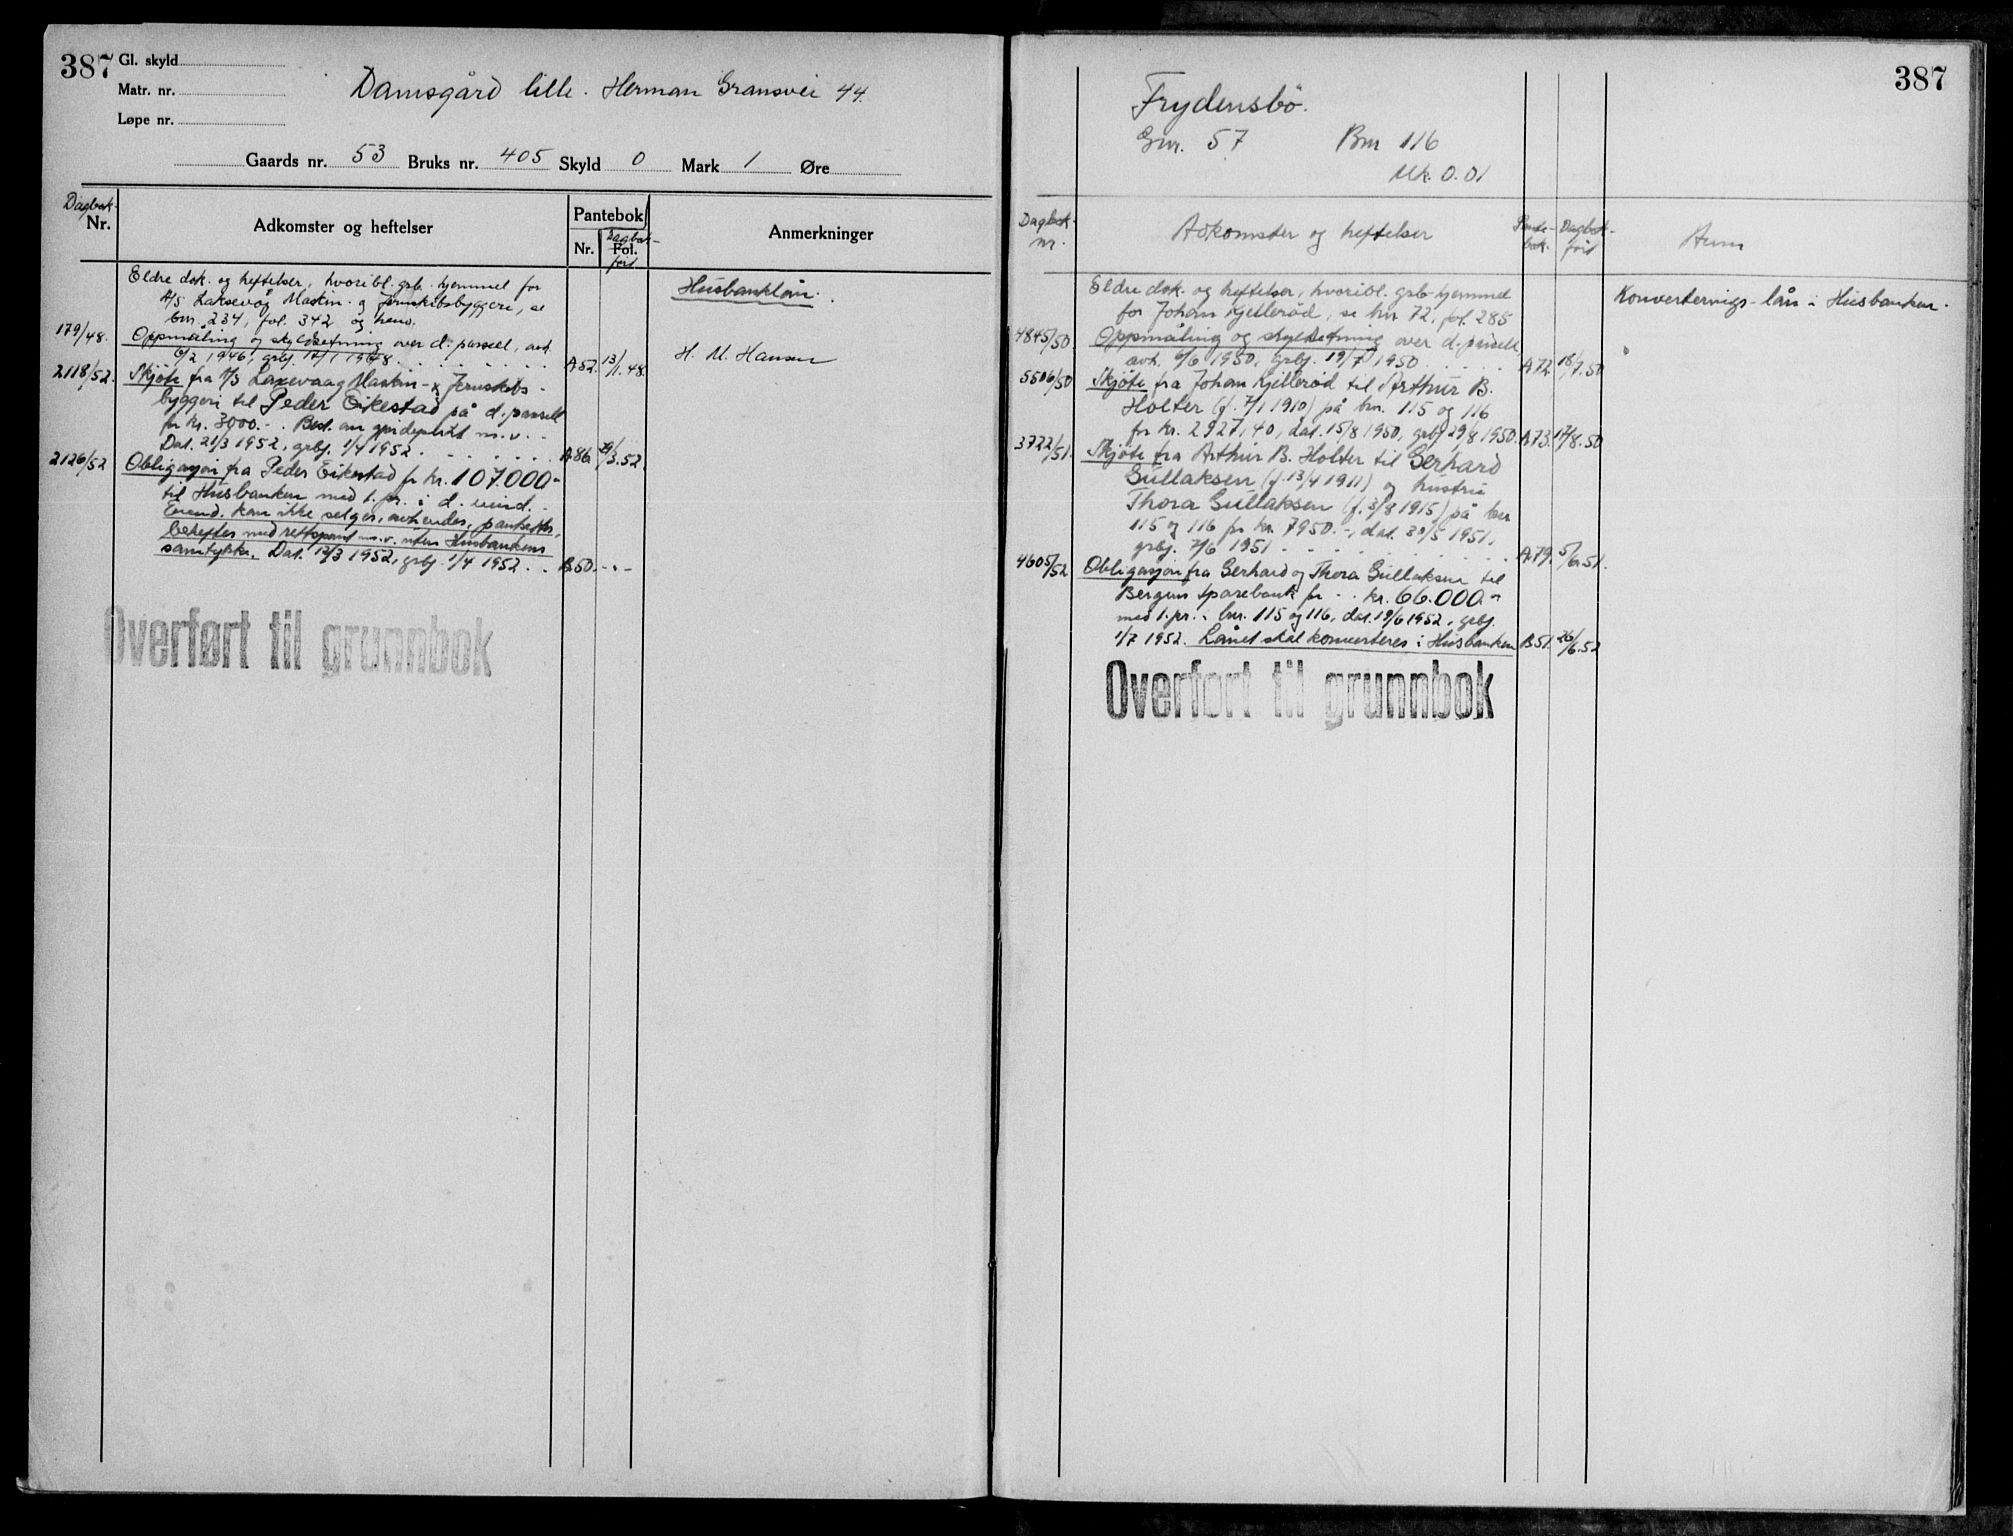 387
Gl. skyld
Matr. nr.
Løpe nr.
Damsgård lille. Herman Gransvei 44.
Gaards nr. 53 Bruks nr. 405 Skyld 0 Mark 1 Øre
Dagbok-
Nr.
Adkomster og heftelser
Pantebok
Nr.
Dagbok-
Fol.
ført
Anmerkninger
Eldre dok. og heftelser, hvoribl. grb. hjemmel for
A/S Laksevåg Maskin- & Jernskibsbyggeri, se
bnr. 234, fol. 342 og henv.
Husbanklån.
179/48. Oppmåling og skyldsetning over d. parsel, avh.
6/2 1946, grbj. 17/1 1948 A52. 13/1.48.
H. M. Hansen
2118/52. Skjøte fra A/S Laxevaag Maskin- & Jernskibs-
byggeri til Peder Eikestad på d. parsell
for kr. 3000.-. Best. om gjerdeplikt m.v.
Dat. 21/3 1952, grbj. 1/4 1952. A86. 29/3.52.
2126/52 Obligasjon fra Peder Eikestad fr kr. 107.000-
til Husbanken med 1. pr. i d. eiend.
Eiend. kan ikke selges, avhendes, pantsettes,
beheftes med rettspant m.v. uten Husbankens
samtykke. Dat. 12/3 1952, grbj. 1/4 1952. B50. -"-
Overført til grunnbok
387
Frydensbö.
Gnr. 57 Bnr 116
Mk. 0.01
Dagbok-
nr.
Adkomster og heftelser
Pante-
bok.
Dagbok-
ført
Anm
Eldre dok. og heftelser, hvoribl. grb-hjemmel
for Johan Kjellerød, se bnr 72, fol. 285
Konverterings-lån i Husbanken.
4845/50 Oppmåling og skyldsetning over d. parsell,
avh. 6/6 1950, grbj. 19/7 1950 A72 18/7.50
5506/50 Skjøte fra Johan Kjellerød til Arthur B.
Holter (f. 7/1 1910) på bnr. 115 og 116
for kr. 2927,40, dat. 15/8 1950, grbj 29/8 1950. A73. 17/8.50
3722/51. Skjøte fra Arthur B. Holter til Gerhard
Gullaksen (f. 13/4 1911) og hustru
Thora Gullaksen (f. 3/8 1915) på bnr
115 og 116 for kr. 7950.-, dat. 30/5 1951,
grbj. 7/6 1951 A79. 5/6.51.
4605/52 Obligasjon fra Gerhard og Thora Gullaksen til
Bergens Sparebank for kr. 66.000.-
med 1. pr. i bnr. 115 og 116, dat. 19/6 1952, grbj.
1/7 1952. Lånet skal konverteres i Husbanken B51. 26/6.52
Overført til grunnbok